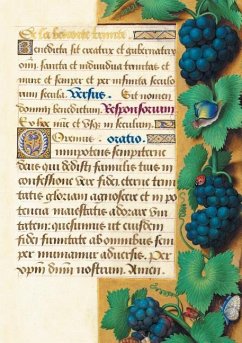 De la benoiste trinite.
Benedicta sit creatrix et gubernatrix
om̃, sancta et indiuidua trinitas et
nunc et semper et per infinita seculo
rum secula. Versus. Sit nomen
domini benedictum. Responsorium
Ex hoc nũc et vsq; in seculum.
Oremus. oratio.
Omnipotens sempiterne
deus qui dedisti famulis tuis in
confessione vere fidei eterne trini
tatis gloriam agnoscere et in po
tencia maiestatis adorare vni
tatem: quesumus ut eiusdem
fidei firmitate ab omnibus sem
per muniamur aduersis. Per
xp̃m dñm nostrum. Amen.